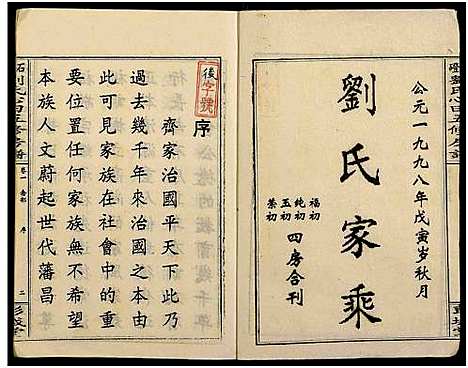 公元一九九八年戊寅岁秋月
劉氏家乘
福初
纯初
玉初
萘初
四房合刊
後字號
序
齊家治國平天下此乃
過去幾千年來治國之本由
此可見家族在社會中的重
要位置任何家族無不盼望
本族人文蔚起世代藩昌
卷一
序
二